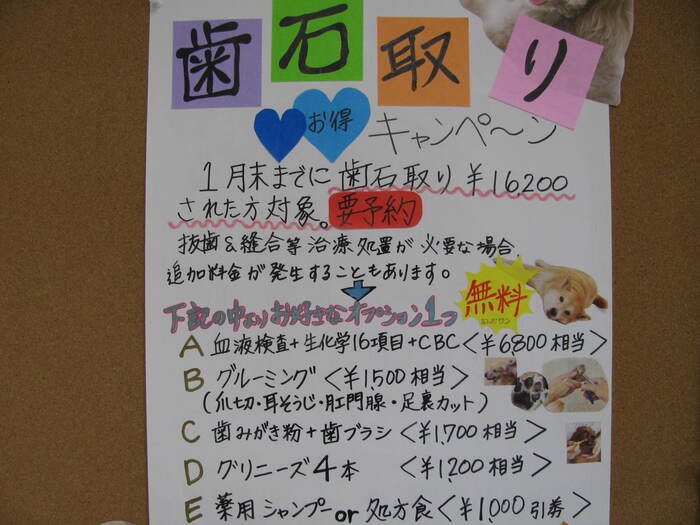 歯石取り
お得
キャンペ〜ン
1月末までに歯石取り¥16200
された方対象。要予約
抜歯&縫合等治療処置が必要な場合
追加料金が発生することもあります。
下記の中よりお好きなオプション1つ
無料
A 血液検査+生化学16項目+CBC<¥6800相当>
B グルーミング<¥1500相当>
(爪切・耳そうじ・肛門腺・足裏カット)
C 歯みがき粉+歯ブラシ<¥1,700相当>
D グリニーズ4本 <¥1,200相当>
E 薬用シャンプーor処方食<¥1,000引券>